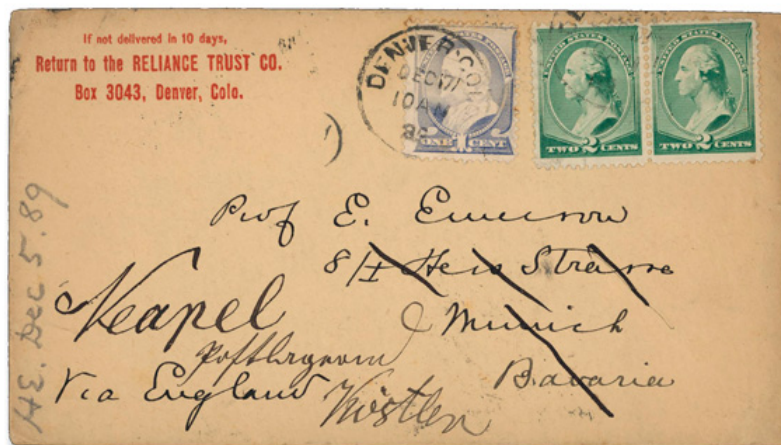 If not delivered in 10 days,
Return to the RELIANCE TRUST CO.
Box 3043, Denver, Colo.
DENVER COL
DEC 17
10 AM
89
UNITED STATES POSTAGE
ONE 1 CENT
UNITED STATES POSTAGE
TWO 2 CENTS
UNITED STATES POSTAGE
TWO 2 CENTS
Prof E. Emerson
8/I Hess Strasse
Munich
Bavaria
Neapel
Postlagernd
Via England
Köstler
HE. Dec 5. 89